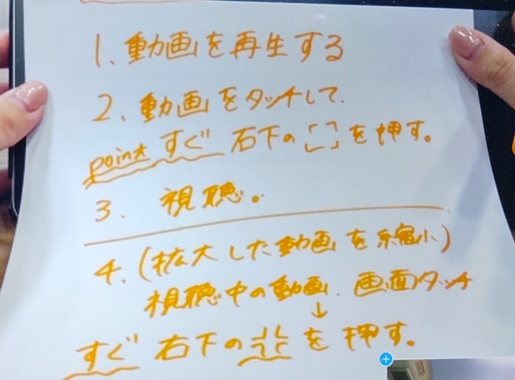 1. 動画を再生する
2. 動画をタッチして、
point すぐ 右下の[ ]を押す。
3. 視聴。
4. (拡大した動画を縮小)
視聴中の動画、画面タッチ
↓
すぐ 右下の を押す。